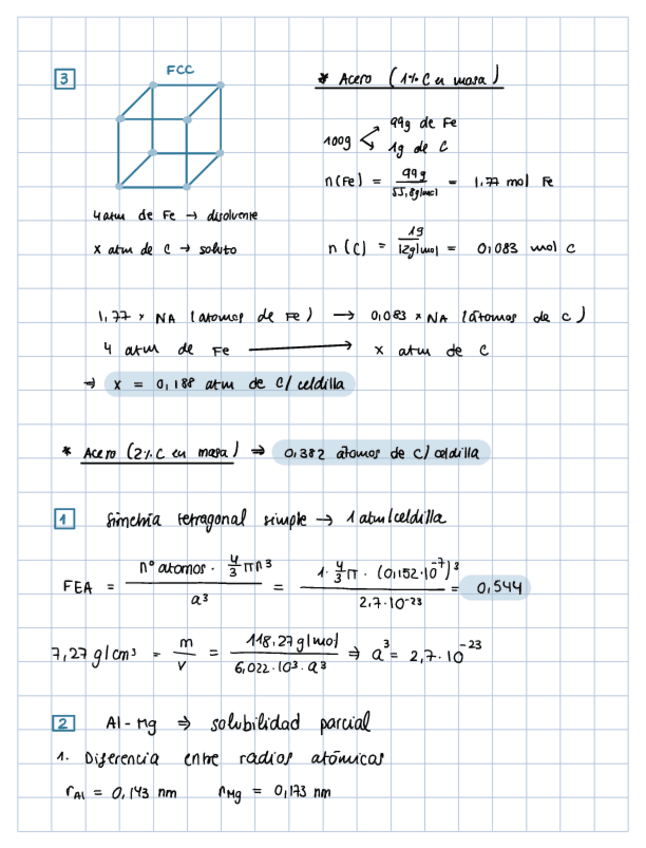 3 FCC
* Acero (1% C en masa)
100g < 99g de Fe
1g de C
n(Fe) = 99g / 55,8g/mol = 1,77 mol Fe
4 atm de Fe → disolvente
x atm de C → soluto
n(C) = 1g / 12g/mol = 0,083 mol C
1,77 × NA (átomos de Fe) → 0,083 × NA (átomos de C)
4 atm de Fe → x atm de C
⇒ x = 0,188 atm de C/celdilla
* Acero (2% C en masa) ⇒ 0,382 átomos de C/celdilla
1 Simetría tetragonal simple → 1 atm/celdilla
FEA = nº atomos · 4/3 πr³ / a³ = 1 · 4/3 π · (0,152·10⁻⁷)³ / 2,7·10⁻²³ = 0,544
7,27 g/cm³ = m / v = 118,27 g/mol / 6,022·10³·a³ ⇒ a³ = 2,7·10⁻²³
2 Al-Mg ⇒ solubilidad parcial
1. Diferencia entre radios atómicos
rAl = 0,143 nm rMg = 0,173 nm